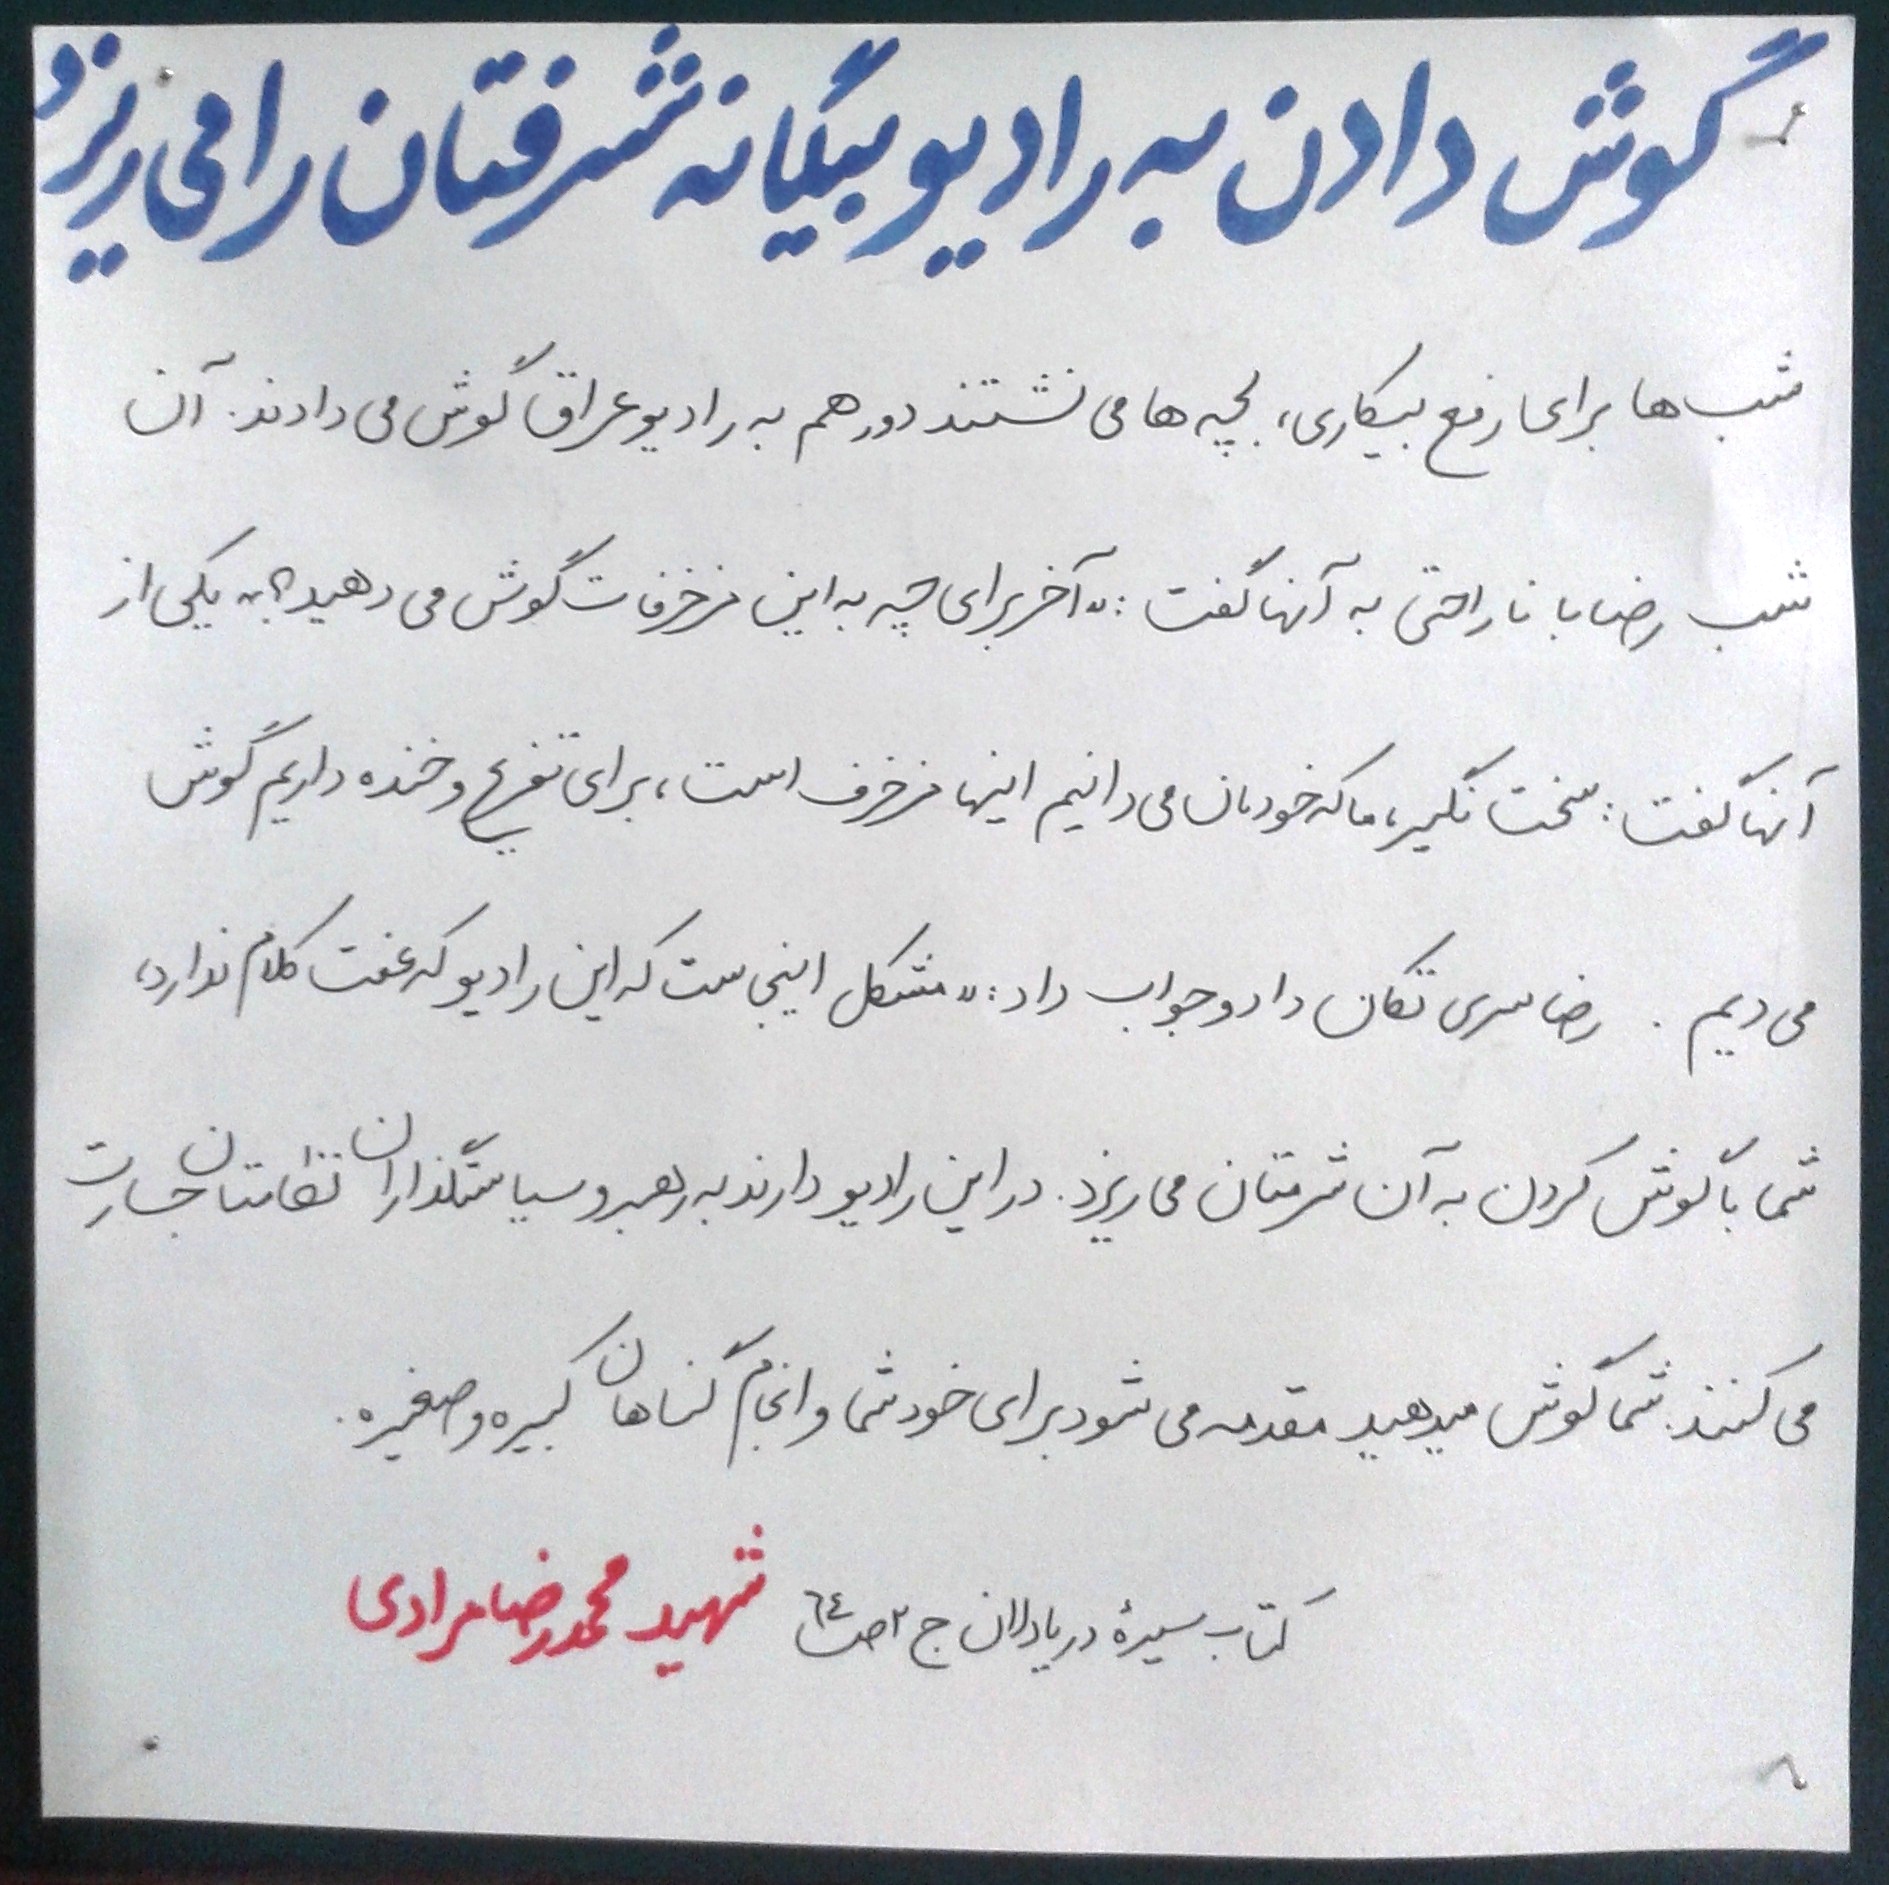 گوش دادن به رادیو بیگانه شرفتان را می ریزد
شب ها برای رفع بیکاری، بچه ها می نشستند دور هم به رادیو عراق گوش می دادند. آن
شب رضا با ناراحتی به آنها گفت: «آخر برای چه به این مزخرفات گوش می دهید؟» یکی از
آنها گفت: سخت نگیر، ما که خودمان می دانیم اینها مزخرف است، برای تفریح و خنده داریم گوش
می دیم. رضا سری تکان داد و جواب داد: «مشکل اینجاست که این رادیو که عفت کلام ندارد،
شما با گوش کردن به آن شرفتان می ریزد. در این رادیو دارند به رهبر و سیاستگذاران نظامتان جسارت
می کنند. شما گوش میدهید مقدمه می شود برای خود شما و انجام گناهان کبیره و صغیره.
کتاب سیرهٔ دریادلان ج ۲ ص ٦٤ شهید محمدرضا مرادی